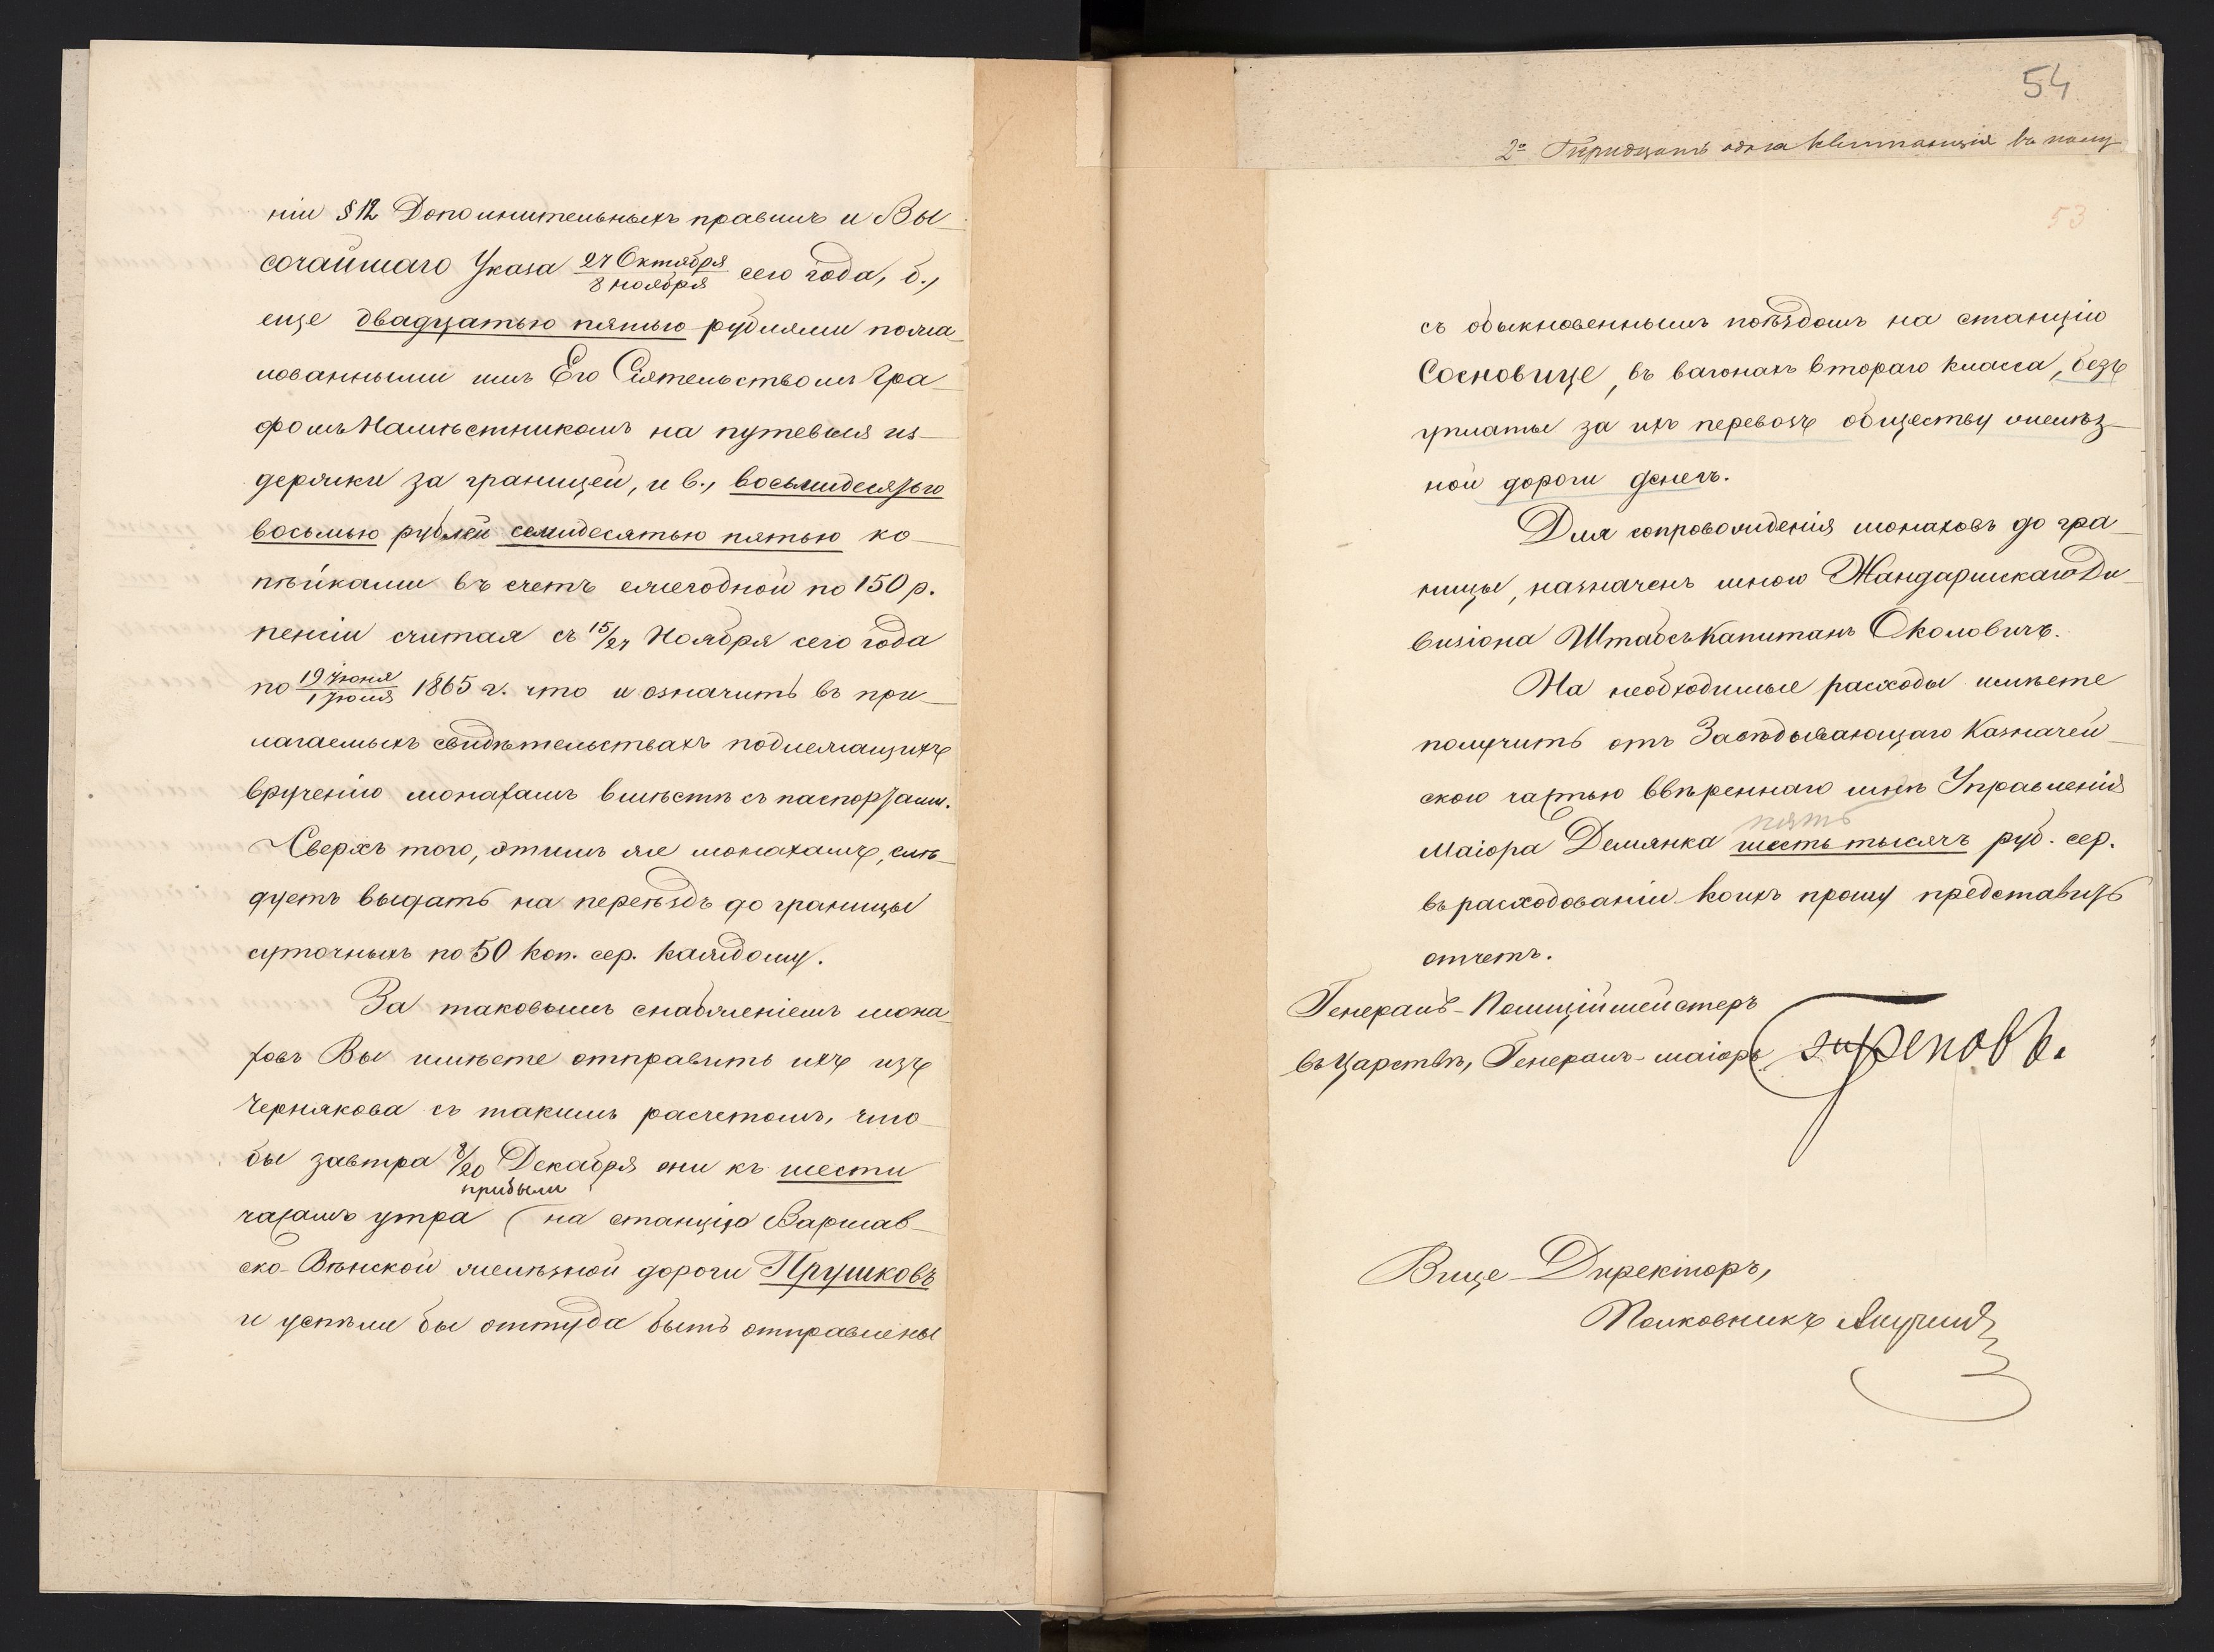 ніи § 12 Дополнительныхъ правилъ и Вы-
сочайшаго Указа 27 Октября / 8 Ноября сего года, б.,
еще двадцатью пятью рублями пожа-
лованными имъ Его Сіятельствомъ Гра-
фомъ Намѣстникомъ на путевыя из-
держки за границей, и в., восьмидесятью
восьмью рублей семидесятью пятью ко-
пѣйками въ счетъ ежегодной по 150 р.
пенсіи считая съ 15/27 Ноября сего года
по 19 Іюня / 1 Іюля 1865 г. что и означить въ при-
лагаемыхъ свидѣтельствахъ подлежащихъ
врученію монахамъ вмѣстѣ съ паспортами.
Сверхъ того, этимъ же монахамъ, слѣ-
дуетъ выдать на переѣздъ до границы
суточныхъ по 50 коп. сер. каждому.
За таковымъ снабженіемъ мона-
ховъ Вы имѣете отправить ихъ изъ
Чернякова съ такимъ расчетомъ, что-
бы завтра 8/20 Декабря они къ шести
прибыли
часамъ утра на станцію Варшав-
ско-Вѣнской желѣзной дороги Прушковъ
и успѣли бы оттуда быть отправлены
54
2º Тиридцать одна квитанція въ полу
53
съ обыкновеннымъ поѣздомъ на станцію
Сосновице, въ вагонахъ втораго класса, безъ
уплаты за ихъ перевозъ обществу желѣз-
ной дороги денегъ.
Для сопровожденія монаховъ до гра-
ницы, назначенъ мною Жандармскаго Ди-
визіона Штабсъ Капитанъ Околовичъ.
На необходимые расходы имѣете
получить отъ Завѣдывающаго Казначей-
скою частью ввѣреннаго мнѣ Управленія
пять
Маіора Демянка шесть тысячъ руб. сер.
въ расходованіи коихъ прошу представить
отчетъ.
Генералъ-Полиціймейстеръ
въ Царствѣ, Генералъ-маіоръ Треповъ.
Вице-Директоръ,
Полковникъ